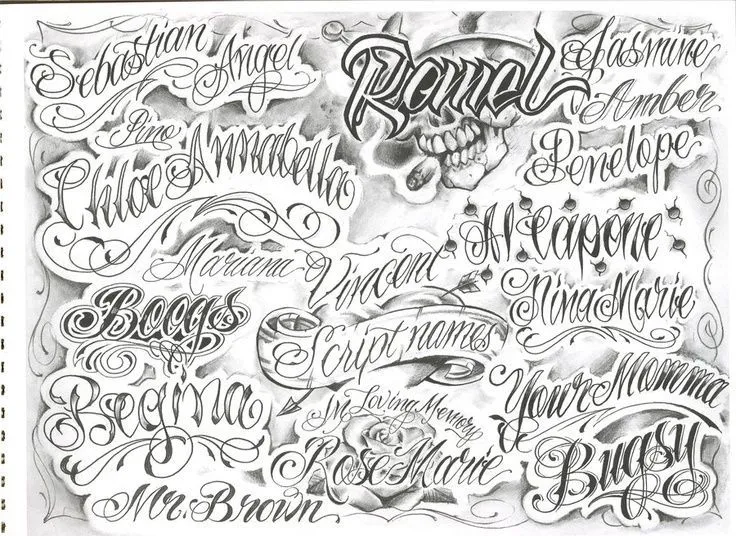 Sebastian
Angel
Ramel
Jasmine
Amber
Chloe Annabella
Penelope
Al Capone
Mariana
Vincent
Nina Marie
Boogs
Script names
Your Momma
Regina
In Loving Memory
Rose Marie
Bugsy
Mr. Brown